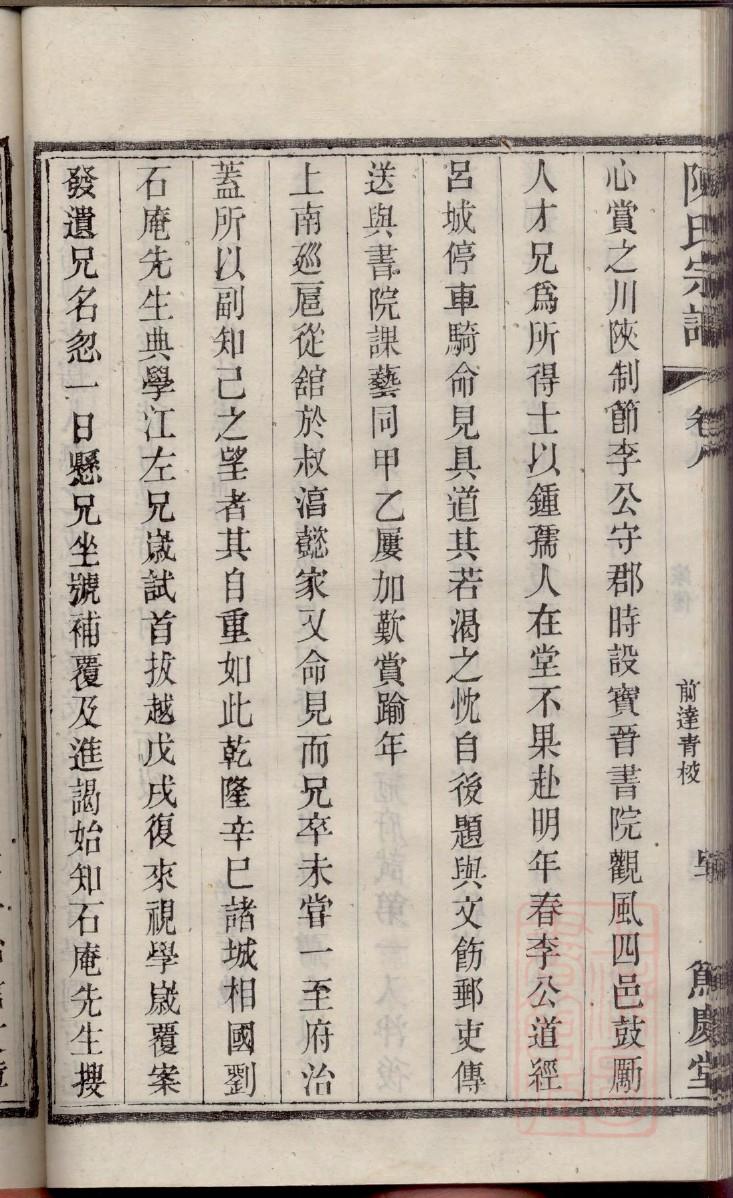 陳氏宗譜
卷八
前達青棱
篤慶堂
心賞之川陜制節李公守郡時設寶晉書院觀風四邑鼓勵
人才兄爲所得士以鍾孺人在堂不果赴明年春李公道經
呂城停車騎命見具道其若渴之忱自後題與文飭郵吏傳
送與書院課藝同甲乙屢加歎賞踰年
上南廵扈從舘於叔渟懿家又命見而兄卒未嘗一至府治
蓋所以副知己之望者其自重如此乾隆辛巳諸城相國劉
石庵先生典學江左兄嵗試首拔越戊戌復來視學嵗覆案
發遺兄名忽一日懸兄坐號補覆及進謁始知石庵先生搜